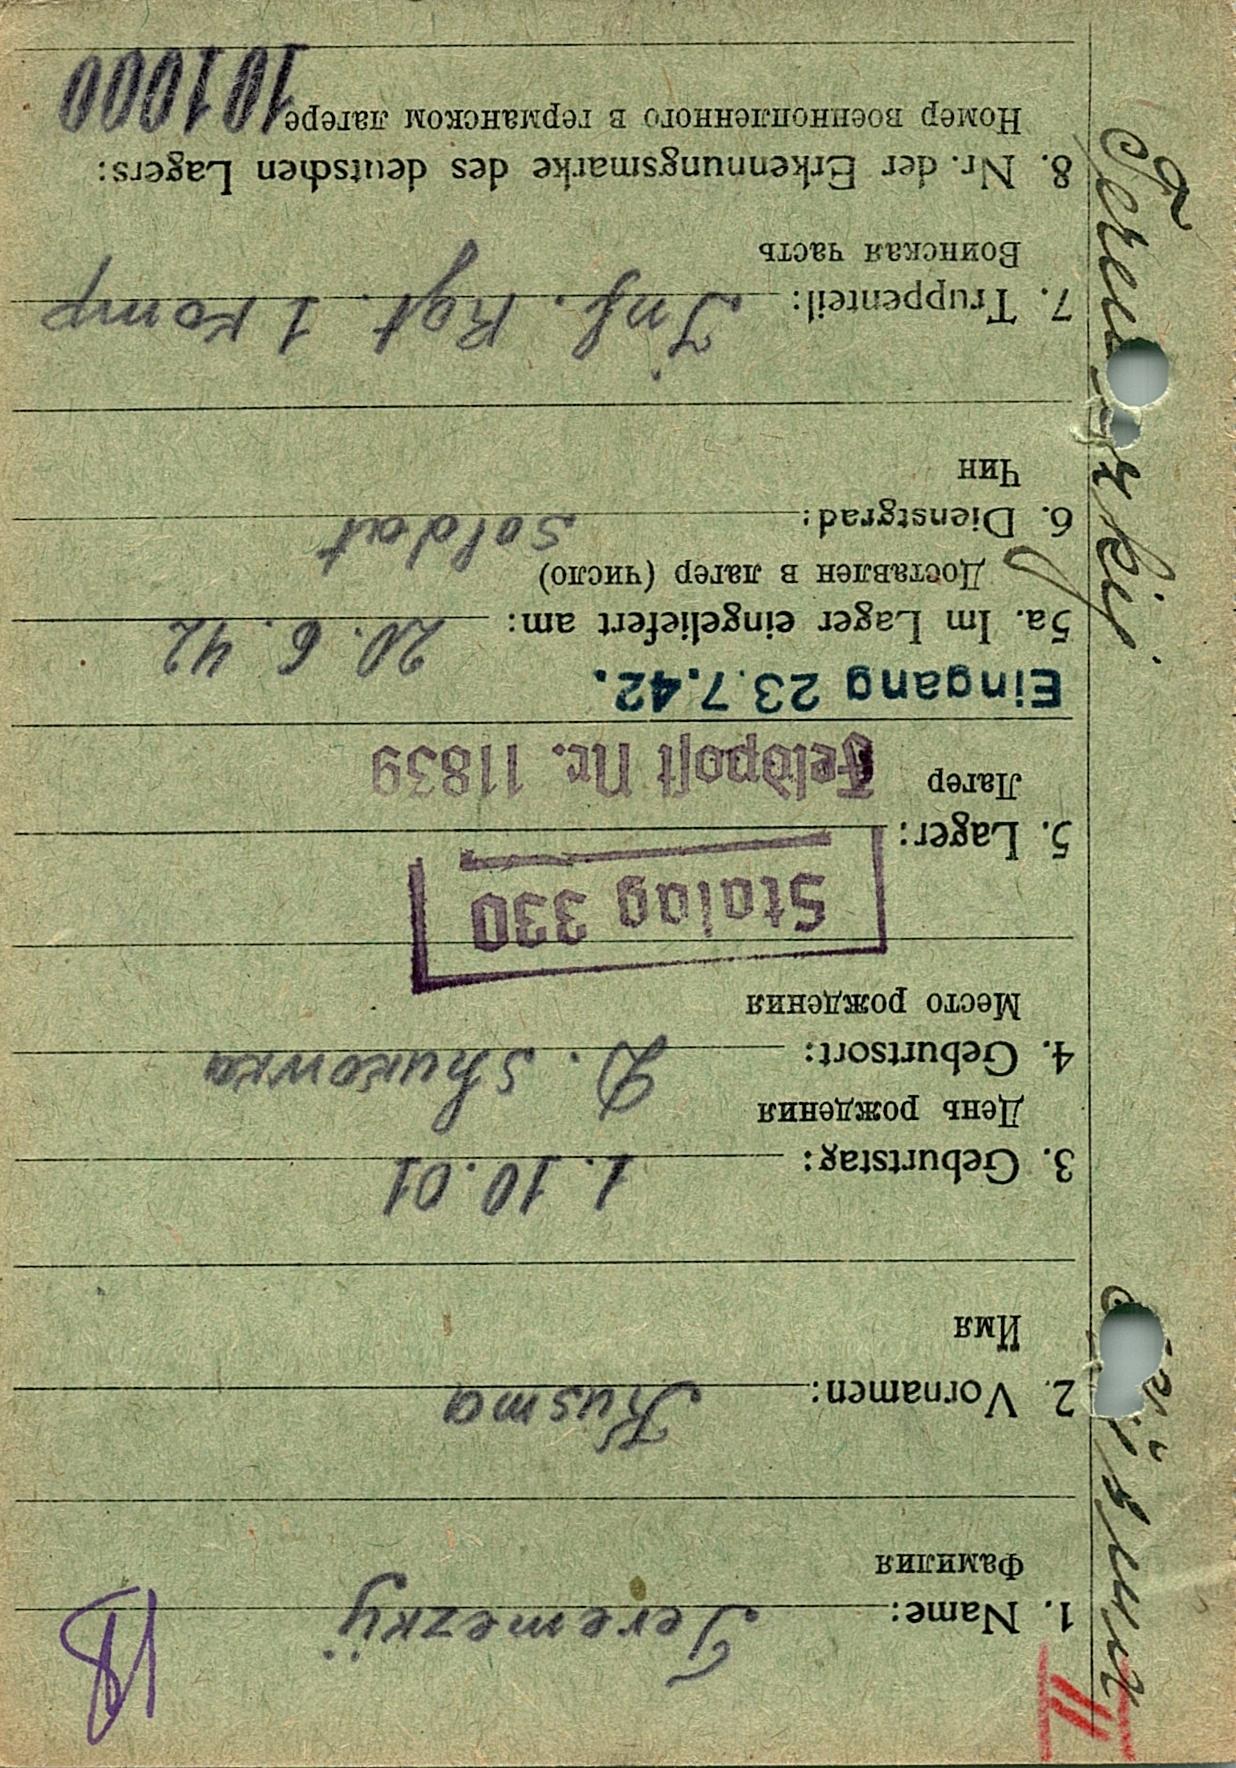 II
1. Name: Teremezkij
Фамилия
2. Vornamen: Kusma
Имя
3. Geburtstag: 1.10.01
День рождения
4. Geburtsort: D. Shukowka
Место рождения
Stalag 330
5. Lager:
Лагер
Feldpost Nr. 11839
Eingang 23.7.42.
5a. Im Lager eingeliefert am: 20.6.42
Доставлен в лагер (число)
6. Dienstgrad: Soldat
Чин
7. Truppenteil: Inf. Rgt. 1 Komp
Воинская часть
8. Nr. der Erkennungsmarke des deutschen Lagers:
Номер военнопленного в германском лагере 101000